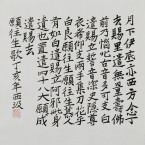 月下伊底亦西方念丁
去賜里遣無量壽佛
前乃惱叱古音多可支白
遣賜立誓音深史隱尊
衣希仰支兩手集刀花乎
白良願往生願往生慕人
有如白遣賜立阿邪此身
遺也置遣四十八大願成
遣賜去
願往生歌丁亥年西